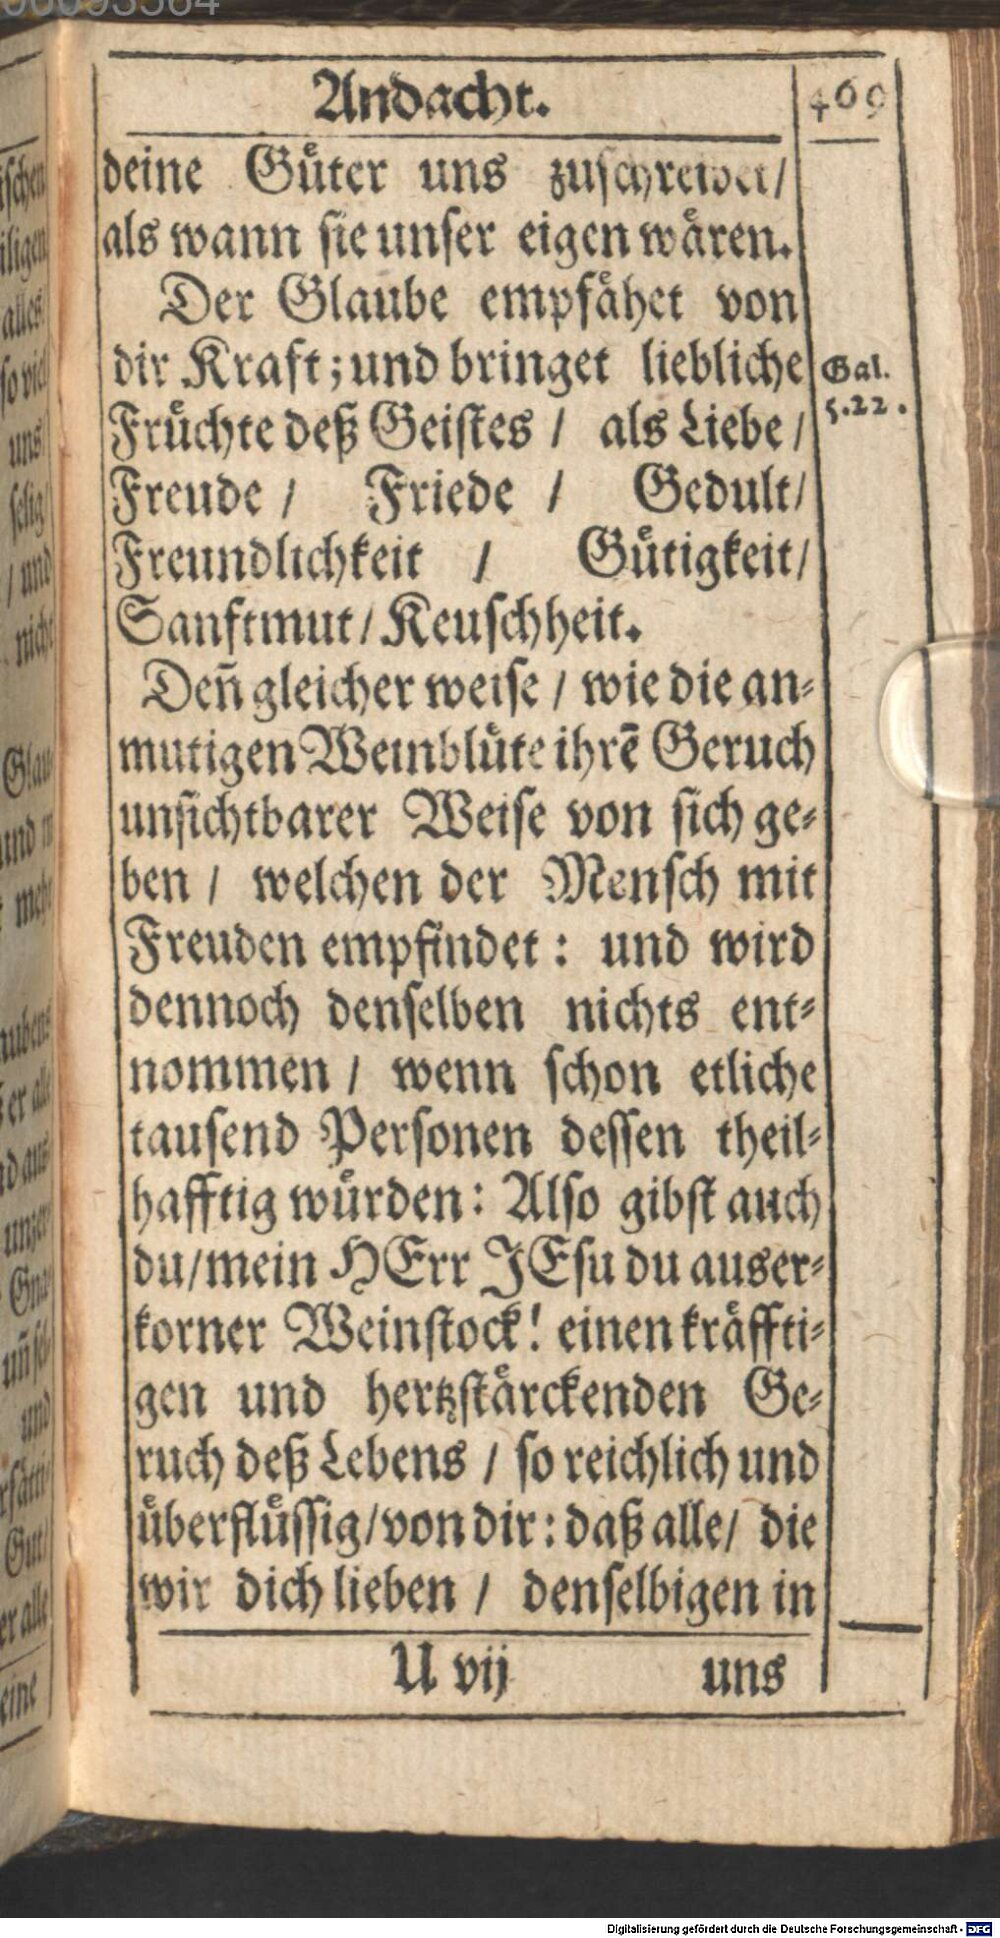 Andacht.
469
deine Guͤter uns zuschreibet/
als wann sie unser eigen waͤren.
Der Glaube empfaͤhet von
dir Kraft; und bringet liebliche
Gal.
5.22.
Fruͤchte deß Geistes / als Liebe /
Freude / Friede / Gedult/
Freundlichkeit / Guͤtigkeit/
Sanftmut / Keuschheit.
Deñ gleicher weise / wie die an⸗
mutigen Weinbluͤte ihrē Geruch
unsichtbarer Weise von sich ge⸗
ben / welchen der Mensch mit
Freuden empfindet : und wird
dennoch denselben nichts ent⸗
nommen / wenn schon etliche
tausend Personen dessen theil⸗
hafftig wuͤrden: Also gibst auch
du/mein HErr JEsu du auser⸗
korner Weinstock! einen kraͤffti⸗
gen und hertzstaͤrckenden Ge⸗
ruch deß Lebens / so reichlich und
uͤberfluͤssig/von dir: daß alle/ die
wir dich lieben / denselbigen in
U vij
uns
Digitalisierung gefördert durch die Deutsche Forschungsgemeinschaft - DFG